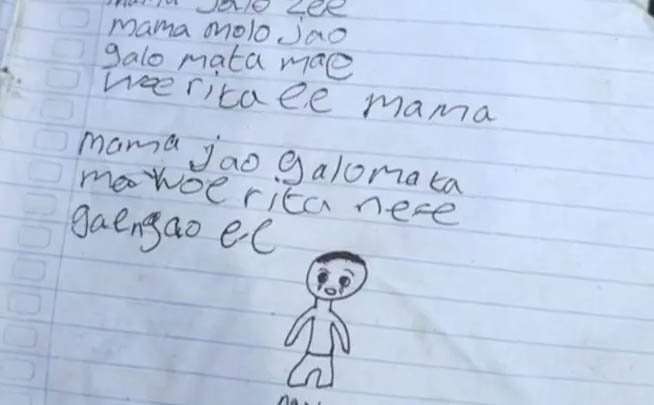 mama galo zee
mama molo jao
galo mata mae
woe rita ee mama
mama jao galo mata
mae woe rita nee
gae ngao ee